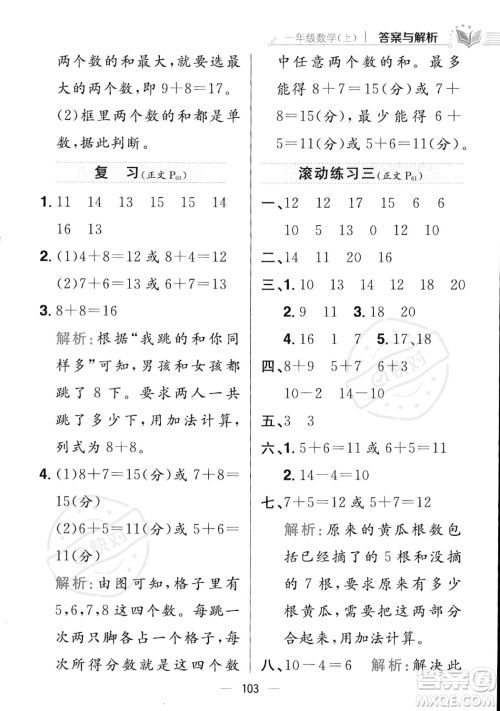 一年级数学(上) 答案与解析
两个数的和最小,选最大
的两个数,和最大。
(2)框里两个数的和都是单
数,据此判断。
复 习(正文 P50)
1. 11 14 13 15 15 14
16 13
2. (1)4+8=12 或 8+4=12
(2)7+6=13 或 6+7=13
3. 8+8=16
解析:根据“我跳的和你同
样多”可知,男孩和女孩都
跳了 8 下。要求两人一共
跳了多少下,用加法计算,
列式为 8+8。
4. (1)8+7=15(分)或 7+8=
15(分)
(2)6+5=11(分)或 5+6=
11(分)
解析:由图可知,格子里有
5,6,7,8 这四个数。每跳一
次两只脚踩中的数相加之
次所得分数就是这四个数
中任意两个数的和。最多
能得 7+8=15(分)或 8+
7=15(分),最少能得 6+
5=11(分)或 5+6=11(分)。
滚动练习三(正文 P61)
一、 12 12 15 17 16 6
8 15 3 0 12 19
二、 13 18 10 20
三、 1. 9 11 12
2. 9 18 19
4. 16 1 7 5. 17、18
四、 8+9 5+7 6+3
10-2 14-4
五、 3 3
六、 1. 5+6=11 或 6+5=11
2. 14-4=10
七、 7+5=12 或 5+7=12
解析:原来的黄瓜根数包
括已经摘了的 5 根和没摘
的 7 根。要求原来有多少
根黄瓜,就要把这两部分
合起来,用加法计算。
八、 10-4=6 解析:解决此
103